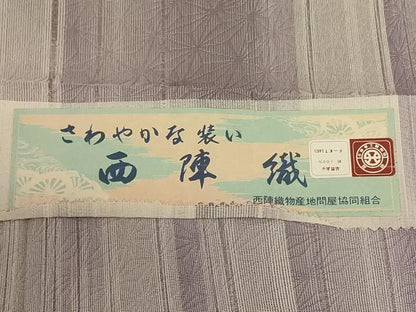 さわやかな装い
西陣織
西陣織物産地問屋協同組合